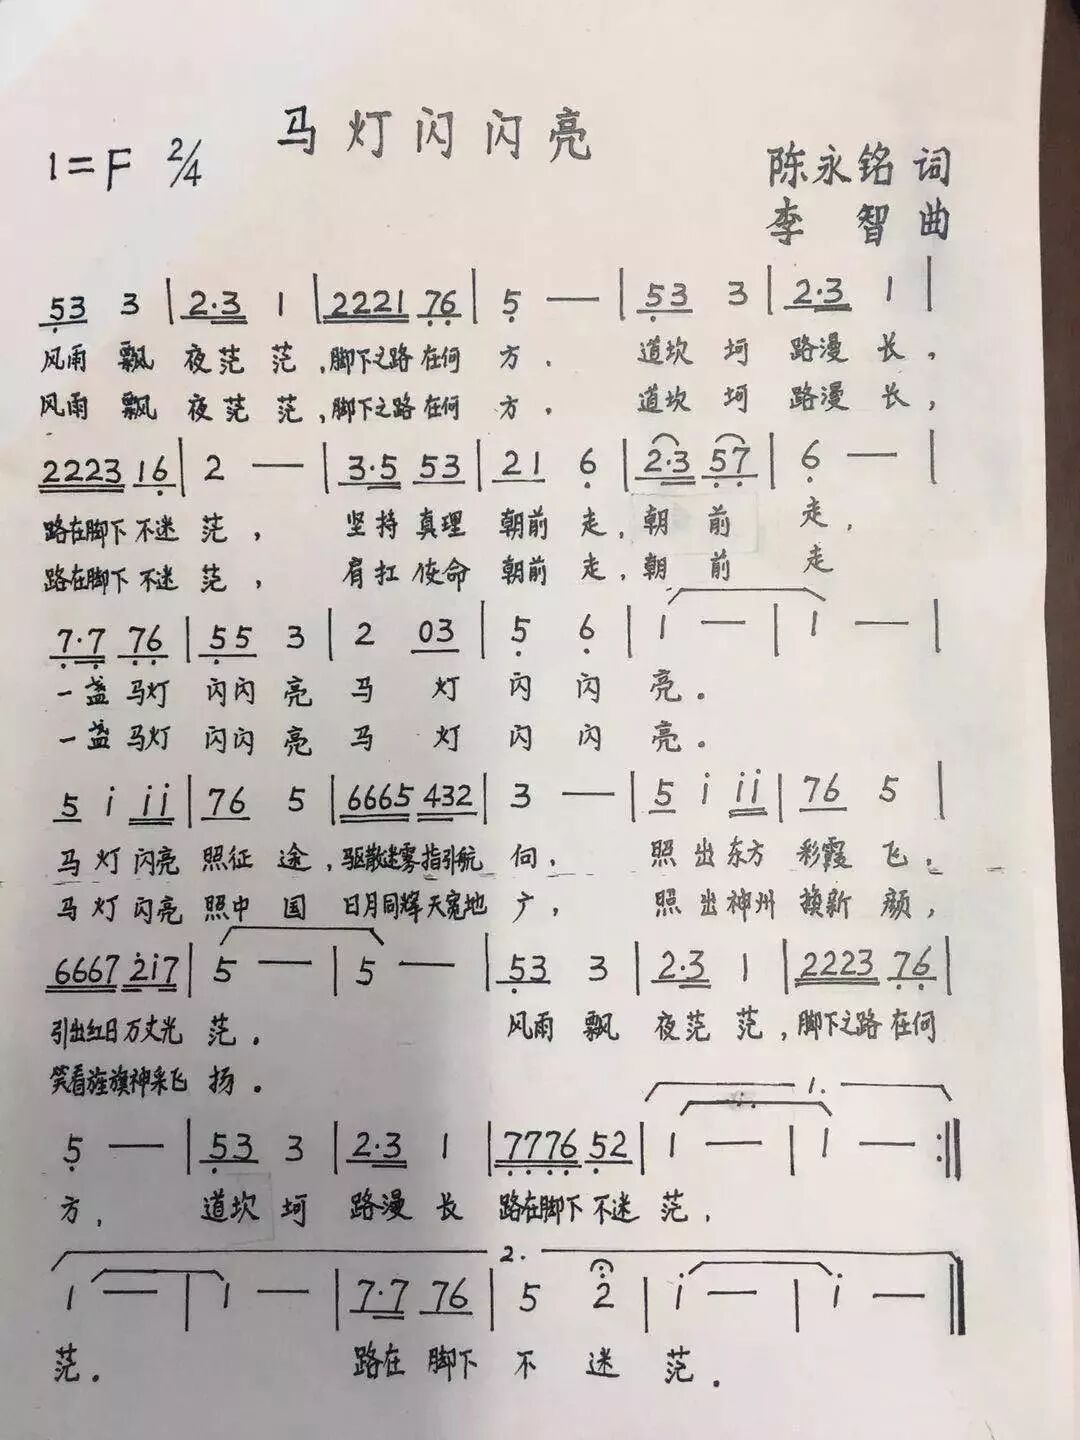 马灯闪闪亮
1=F 2/4
陈永铭 词
李智 曲
53 3 | 2·3 1 | 2221 76 | 5 — | 53 3 | 2·3 1 |
风雨 飘 夜茫 茫,脚下之路 在何 方. 道坎 坷 路漫 长,
风雨 飘 夜茫 茫,脚下之路 在何 方, 道坎 坷 路漫 长,
2223 16 | 2 — | 3·5 53 | 21 6 | 2·3 57 | 6 — |
路在脚下 不迷 茫, 坚持 真理 朝前 走,朝 前 走,
路在脚下 不迷 茫, 肩扛 使命 朝前 走,朝 前 走
7·7 76 | 55 3 | 2 03 | 5 6 | 1 — | 1 — |
一盏 马灯 闪闪 亮 马 灯 闪 闪 亮.
一盏 马灯 闪闪 亮 马 灯 闪 闪 亮.
5 i ii | 76 5 | 6665 432 | 3 — | 5 i ii | 76 5 |
马 灯 闪亮 照征 途,驱散迷雾 指引航 向, 照 出 东方 彩霞 飞.
马 灯 闪亮 照中 国 日月同辉 天宽地 广, 照 出 神州 换新 颜,
6667 2i7 | 5 — | 5 — | 53 3 | 2·3 1 | 2223 76 |
引出红日 万丈光 茫. 风雨 飘 夜茫 茫,脚下之路 在何
笑看旌旗 神采飞 扬.
1.
5 — | 53 3 | 2·3 1 | 7776 52 | 1 — | 1 — :‖
方, 道坎 坷 路漫 长 路在脚下 不迷 茫,
2.
1 — | 1 — | 7·7 76 | 5 2 | i — | i — ‖
茫. 路在 脚下 不 迷 茫.